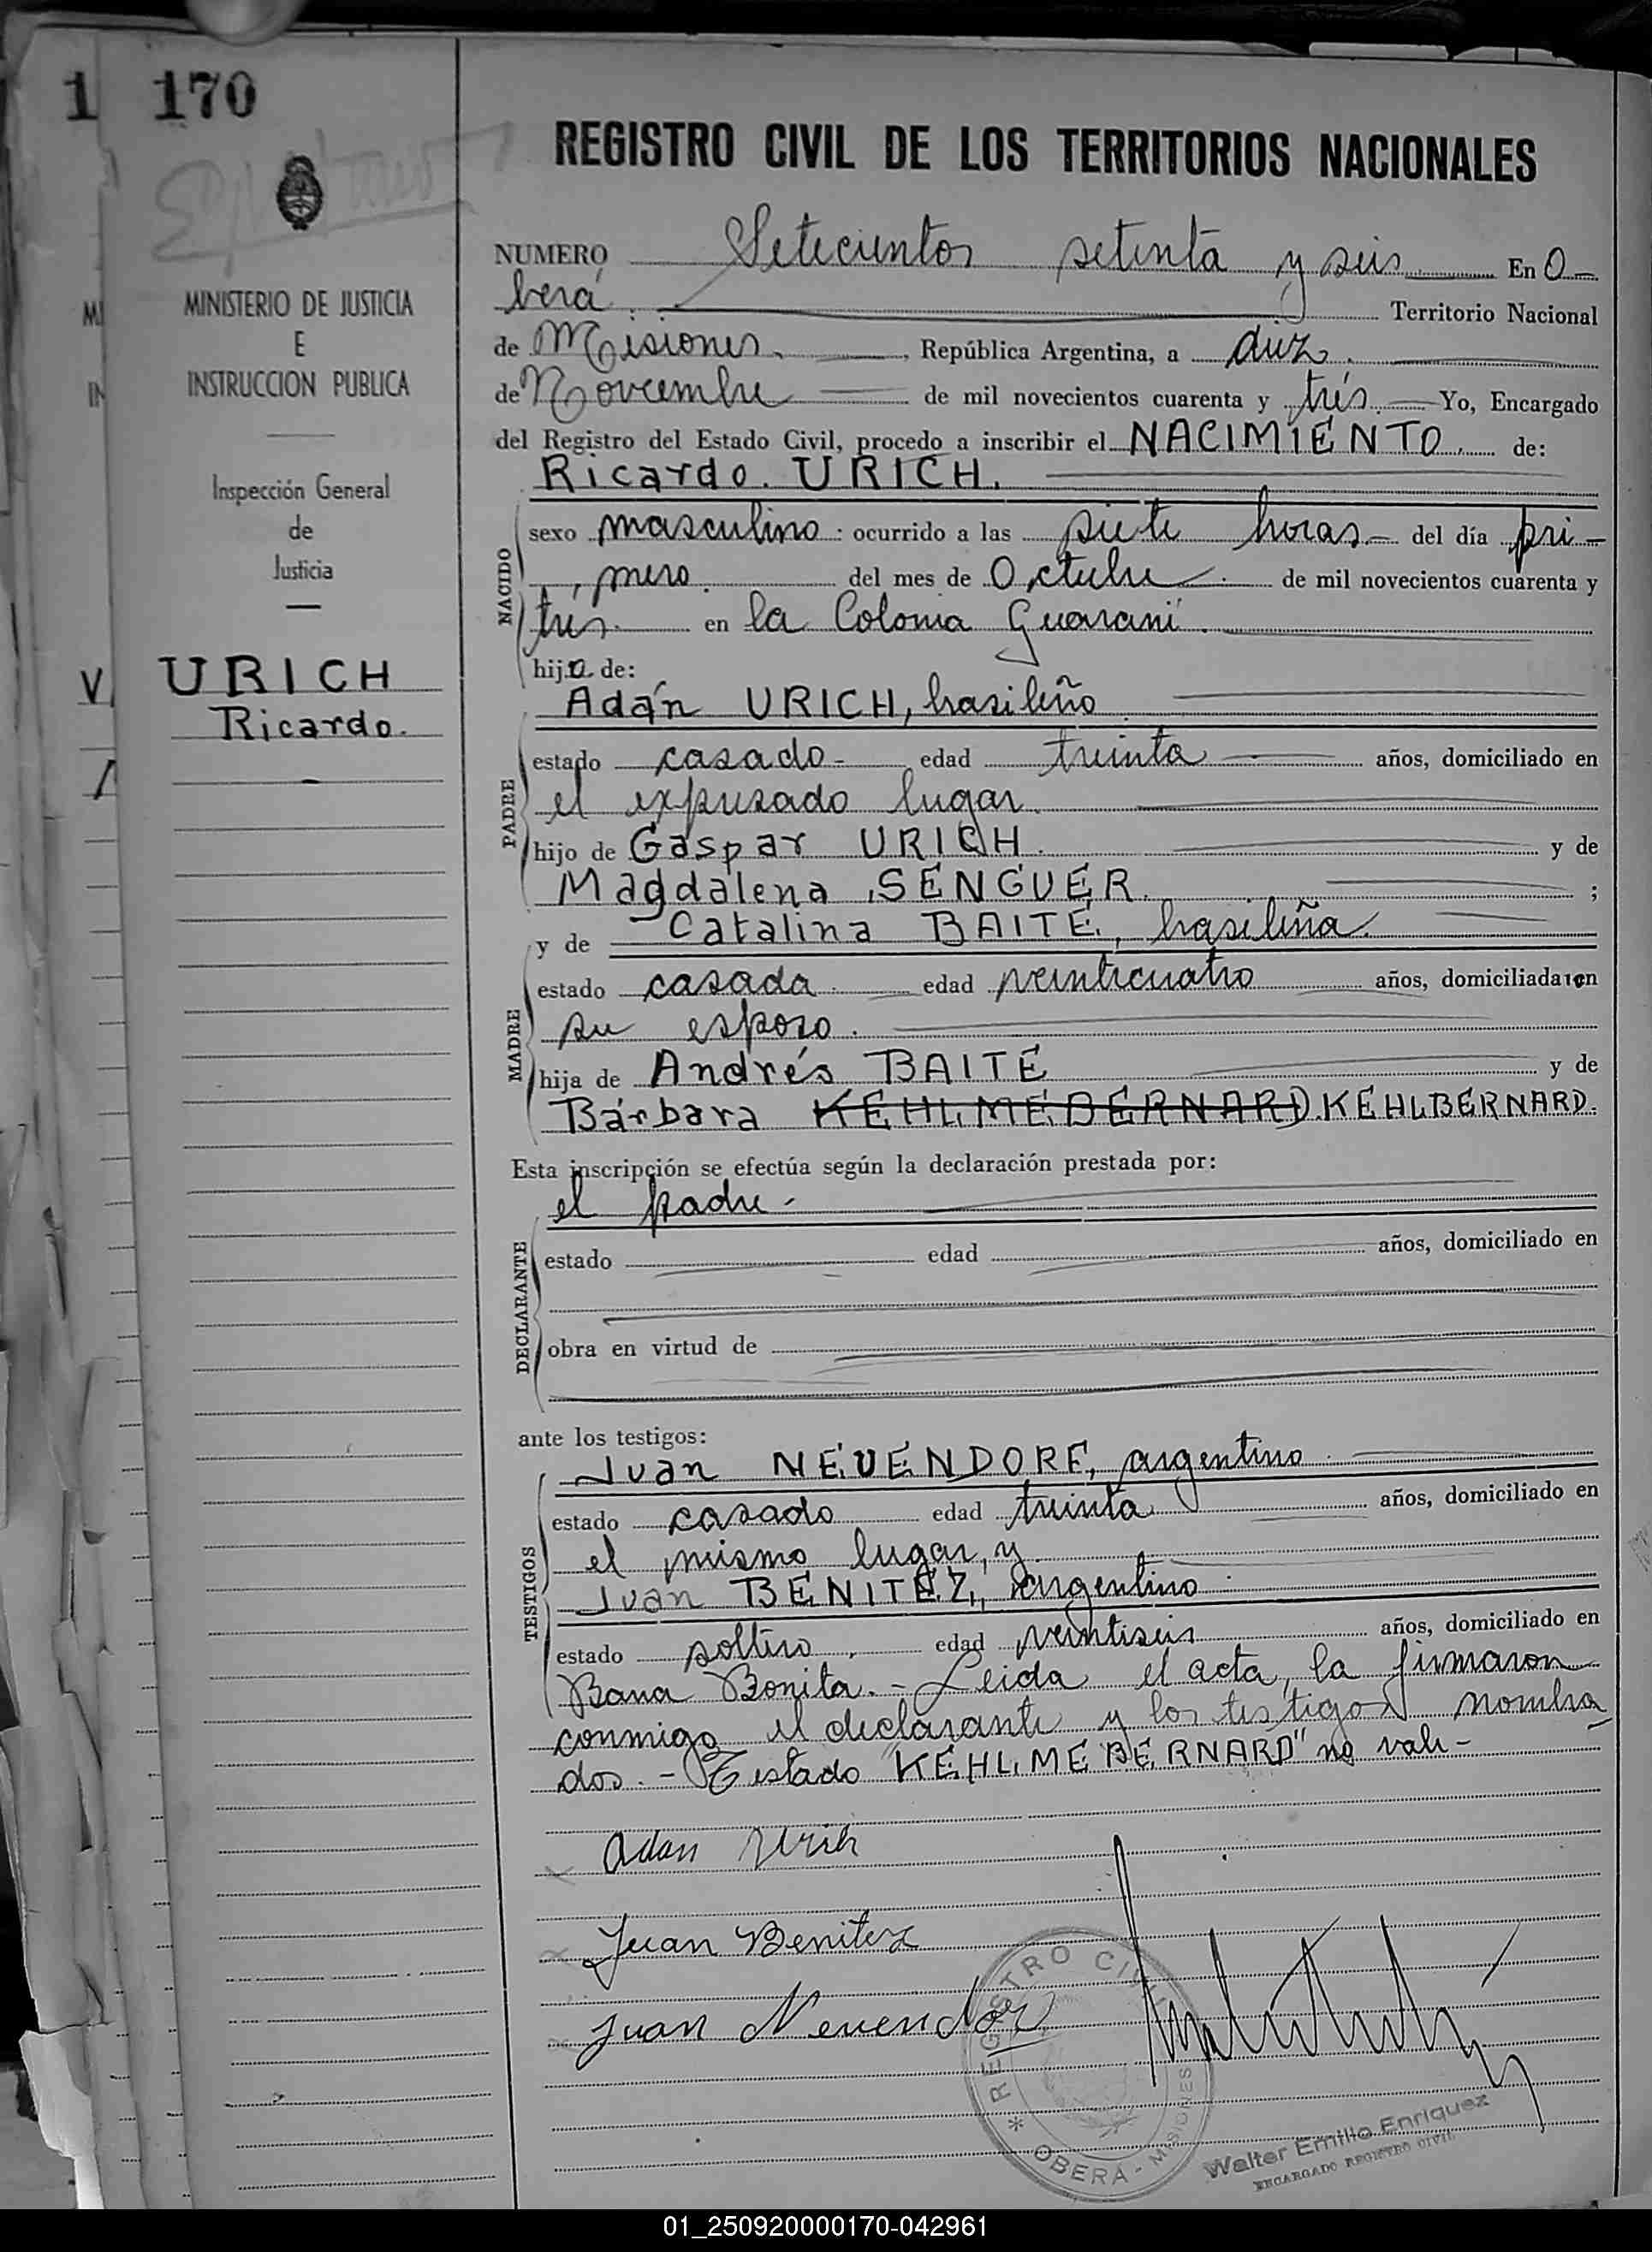 1 170
REGISTRO CIVIL DE LOS TERRITORIOS NACIONALES
MINISTERIO DE JUSTICIA
E
INSTRUCCION PUBLICA
Inspección General
de
Justicia
URICH
Ricardo.
NUMERO Setecientos setenta y seis En O-
berá Territorio Nacional
de Misiones, República Argentina, a diez
de Noviembre de mil novecientos cuarenta y trés Yo, Encargado
del Registro del Estado Civil, procedo a inscribir el NACIMIENTO de:
Ricardo URICH.
NACIDO
sexo masculino ocurrido a las siete horas del día pri-
mero del mes de Octubre de mil novecientos cuarenta y
trés en la Colonia Guaraní
hijo de:
Adán URICH, brasileño
PADRE
estado casado edad treinta años, domiciliado en
el expresado lugar
hijo de Gaspar URICH y de
Magdalena SENGUER ;
y de Catalina BAITE, brasileña
MADRE
estado casada edad veinticuatro años, domiciliada en
su esposo.
hija de Andrés BAITE y de
Bárbara KEHLMEBERNARD. KEHLBERNARD.
Esta inscripción se efectúa según la declaración prestada por:
el padre-
DECLARANTE
estado edad años, domiciliado en
obra en virtud de
ante los testigos:
Juan NEUENDORF, argentino
TESTIGOS
estado casado edad treinta años, domiciliado en
el mismo lugar, y
Juan BENITEZ, argentino
estado soltero, edad veintiseis años, domiciliado en
Bana Bonita.- Leida el acta, la firmaron
conmigo el declarante y los testigos nombra
dos.- Testado "KEHLMEBERNARD" no vale-
Adan Urich
Juan Benitez
Juan Neuendorf
REGISTRO CIVIL
* OBERÁ - MISIONES
Walter Emilio Enriquez
ENCARGADO REGISTRO CIVIL
01_250920000170-042961